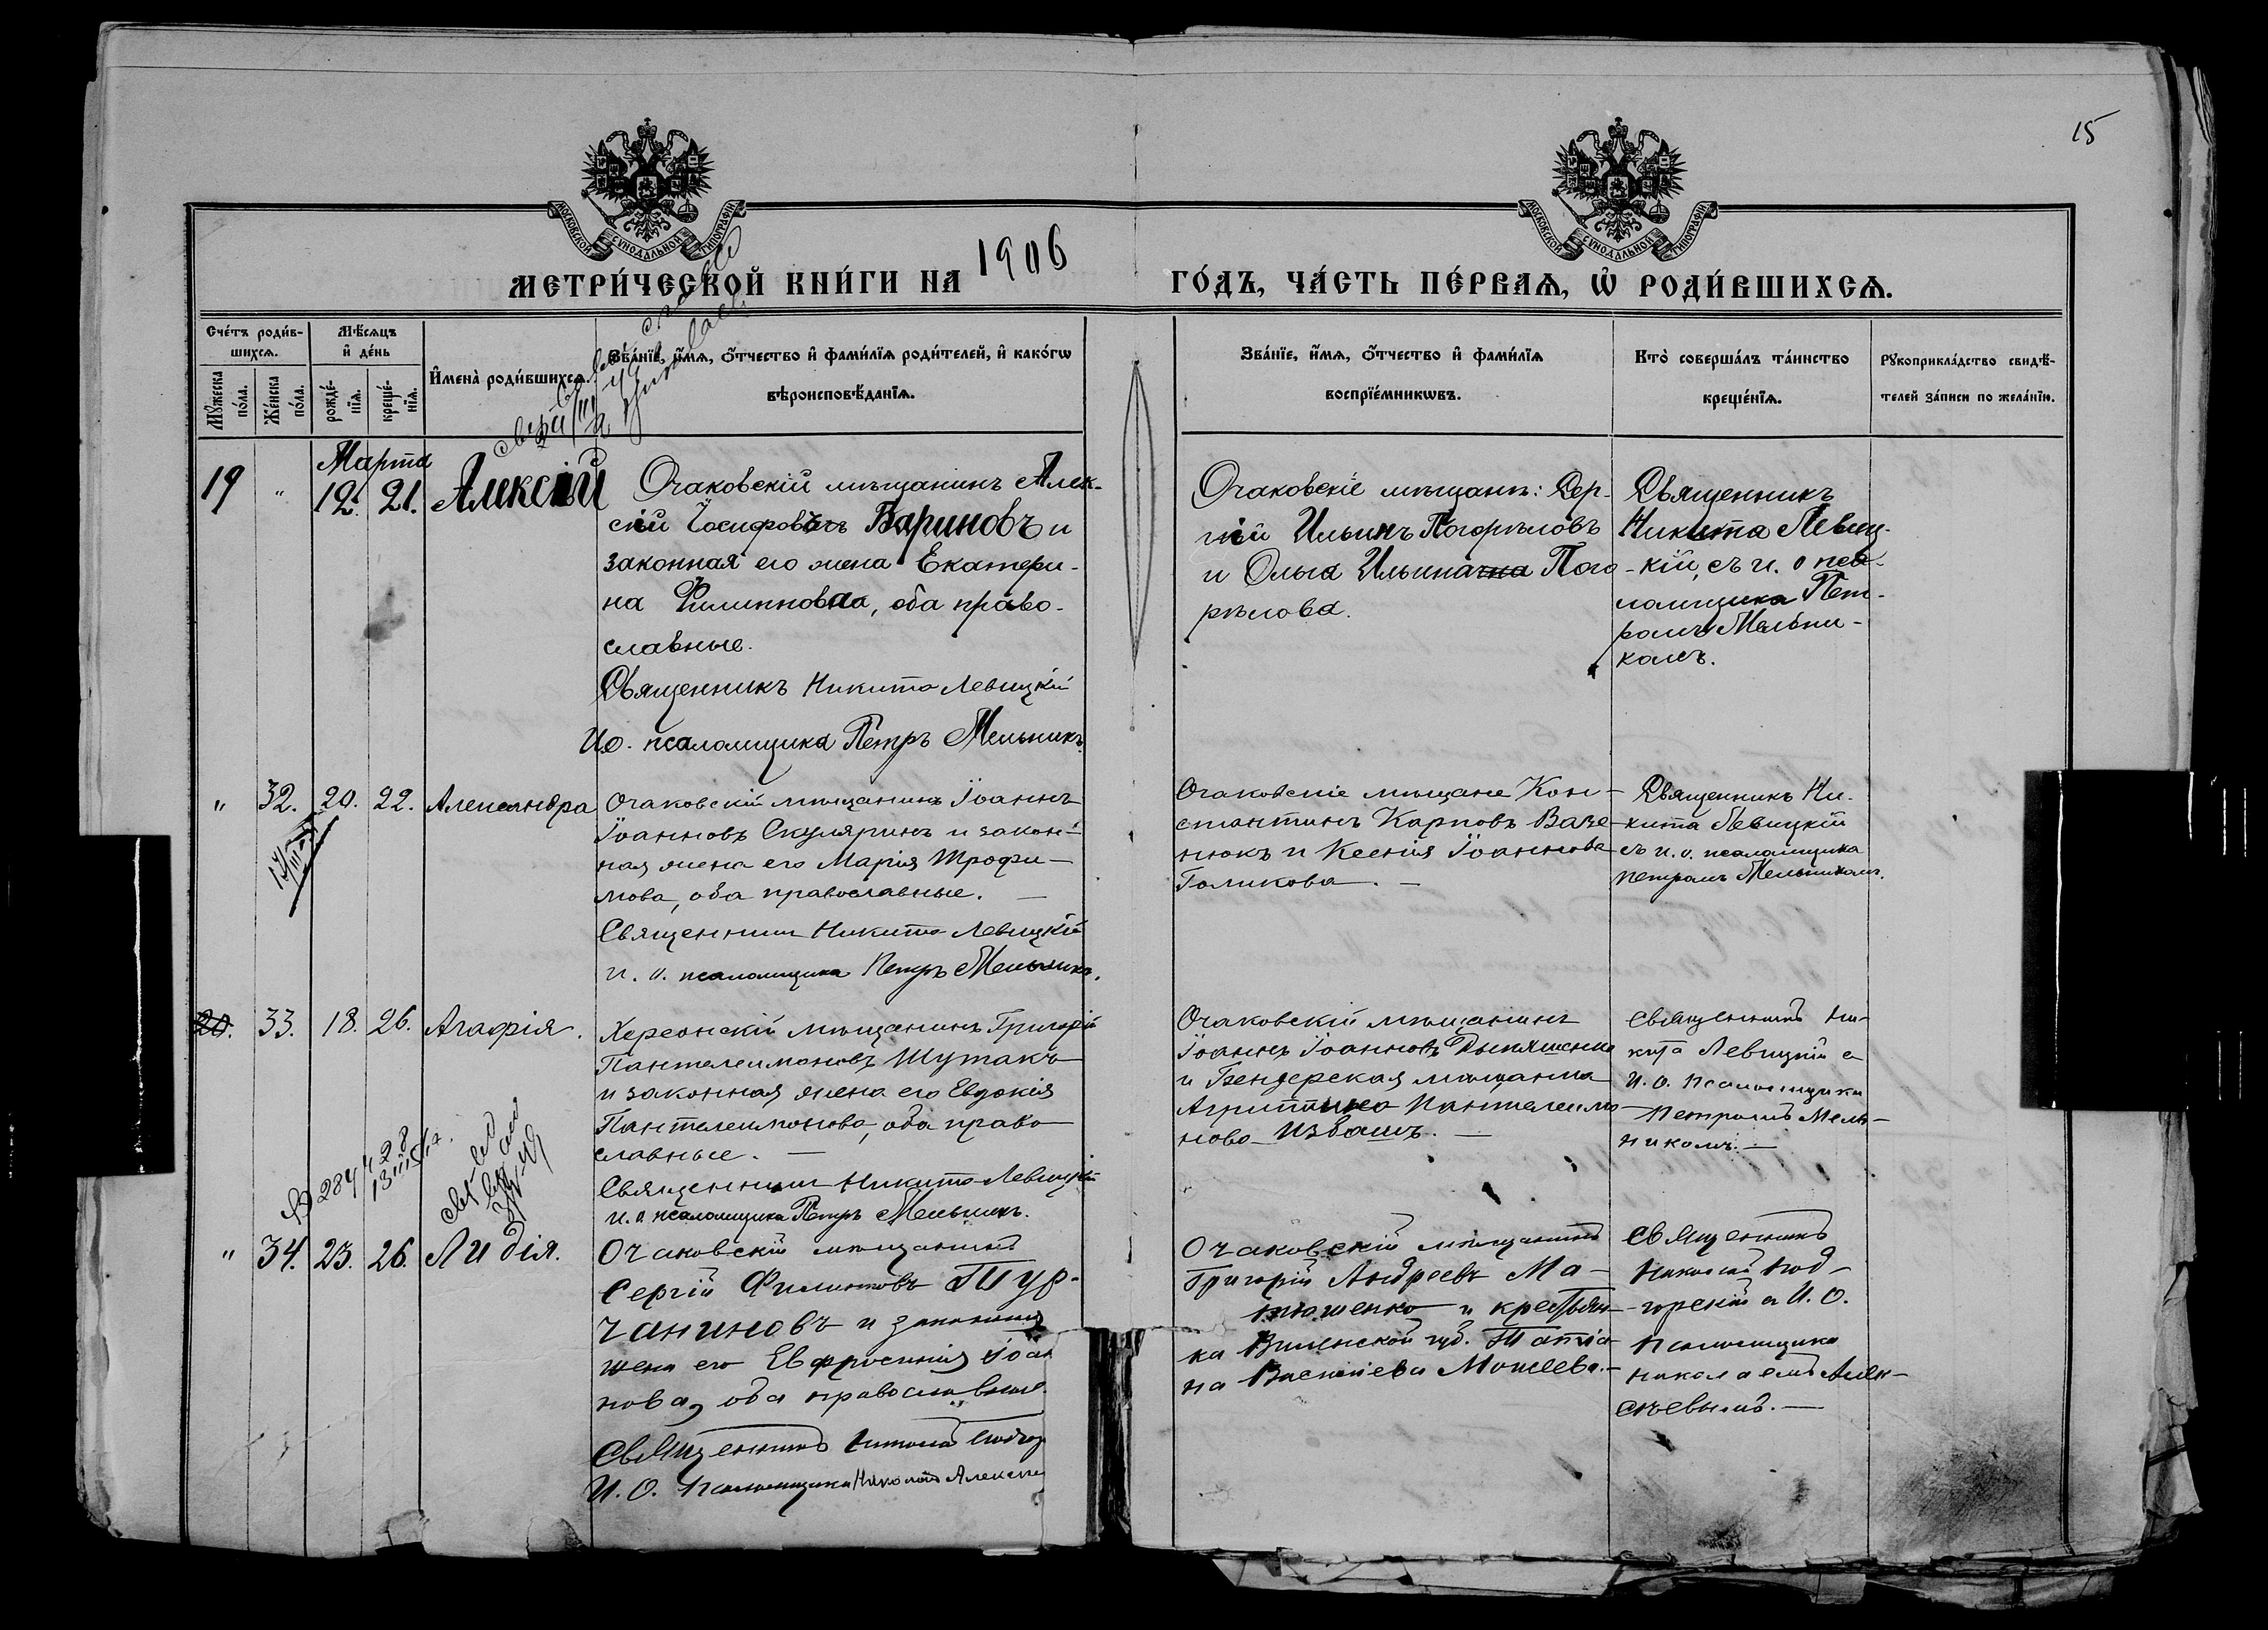 15
МОСКОВСКОЙ СѴНОДАЛЬНОЙ ТИПОГРАФІИ
МОСКОВСКОЙ СѴНОДАЛЬНОЙ ТИПОГРАФІИ
МЕТРИ́ЧЕСКОЙ КНИ́ГИ НА 1906 ГО́ДЪ, ЧА́СТЬ ПЕ́РВАѦ, Ѽ РОДИ́ВШИХСѦ.
Сче́тъ роди́в-
шихсѧ.
Мꙋ́жеска по́ла.
Же́нска по́ла.
Мѣ́сѧцъ
и҆ де́нь
рожде́-
нїѧ.
креще́-
нїѧ.
И҆мена̀ роди́вшихсѧ.
Зва́нїе, и҆́мѧ, ѻ҆́тчество и҆ фами́лїѧ роди́телей, и҆ како́гѡ
вѣроисповѣ́данїѧ.
Зва́нїе, и҆́мѧ, ѻ҆́тчество и҆ фами́лїѧ
воспрїе́мникѡвъ.
Кто̀ соверша́лъ та́инство
креще́нїѧ.
Рꙋкоприкла́дство свидѣ́-
телей за́писи по жела́нїю.
Марта
19 " 12. 21. Алексій
Очаковскій мѣщанинъ Алек-
сій Іосифовъ Бариновъ и
законная его жена Екатери-
на Филиппова, оба право-
славные.
Священникъ Никита Левицкій
И.о. псаломщика Петръ Мельникъ.
Очаковскіе мѣщане: Сер-
гій Ильинъ Погорѣловъ
и Ольга Ильина Пого-
рѣлова.
Священникъ
Никита Левиц-
кій, съ и. о пса-
ломщика Пет-
ромъ Мельни-
комъ.
" 32. 20. 22. Александра
Очаковскій мѣщанинъ Іоаннъ
Іоанновъ Скуляринъ и закон-
ная жена его Марія Трофи-
мова, оба православные.
Священникъ Никита Левицкій
и. о. псаломщика Петръ Мельникъ.
Очаковскіе мѣщане Кон-
стантинъ Карповъ Вазе-
нюкъ и Ксенія Іоаннова
Голикова.
Священникъ Ни-
кита Левицкій
съ и. о. псаломщика
Петромъ Мельникомъ.
20. 33. 18. 26. Агафія.
Херсонскій мѣщанинъ Григорій
Пантелеимоновъ Шутакъ
и законная жена его Евдокія
Пантелеимонова, оба право
славные.
Священникъ Никита Левицкій
и. о. псаломщика Петръ Мельникъ.
Очаковскій мѣщанинъ
Іоаннъ Іоанновъ
и Бендерская мѣщанка
Агриппина Пантелеимо
нова Избашъ.
Священникъ Ни-
кита Левицкій съ
И. О. Псаломщика
Петромъ Мель-
никомъ.
" 34. 23. 26. Лидія.
Очаковскій мѣщанинъ
Сергій Филиповъ Тур-
чаниновъ и законная
жена его Евфросинія Іоан
нова, оба православные.
Священникъ Николай Подгор
И. О. Псаломщика Николай Алексѣе
Очаковскій мѣщанинъ
Григорій Андреевъ Ма-
тюшенко и крестьян-
ка Виленской губ. Татіа
на Васильева Моисеева.
Священникъ
Николай Под-
горскій съ И. О.
Псаломщика
Николаемъ Алек-
сѣевымъ.